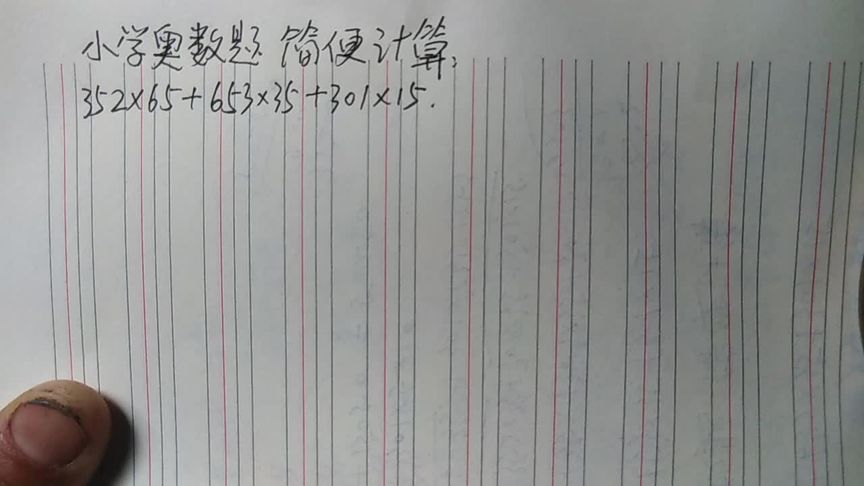 小学奥数题 简便计算:
352×65+653×35+301×15.